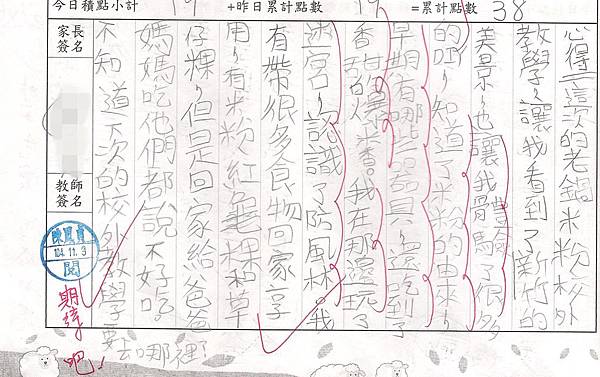 今日積點小計 19 +昨日累計點數 19 =累計點數 38
心得:這次的老鍋米粉校外
教學，讓我看到了新竹的
美景，也讓我體驗了很多
的 知道了米粉的由來，
早期有哪些器具，還吃到了
香甜的爆米香。我在那還玩了
迷宮，認識了防風林。我
有帶很多食物回家享
用，有米粉、紅龜粿和草
仔粿，但是回家給爸爸
媽媽吃他們都說不好吃
不知道下次的校外教學要去哪裡?
家長簽名
教師簽名
104.11.3
閱
期待吧!